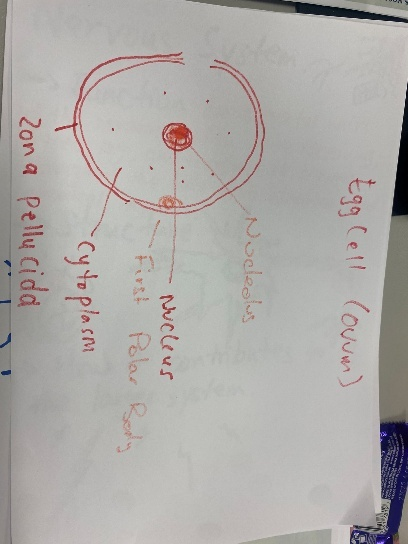 Egg Cell (ovum)
Nucleolus
Nucleus
First Polar Body
Cytoplasm
Zona pellucida